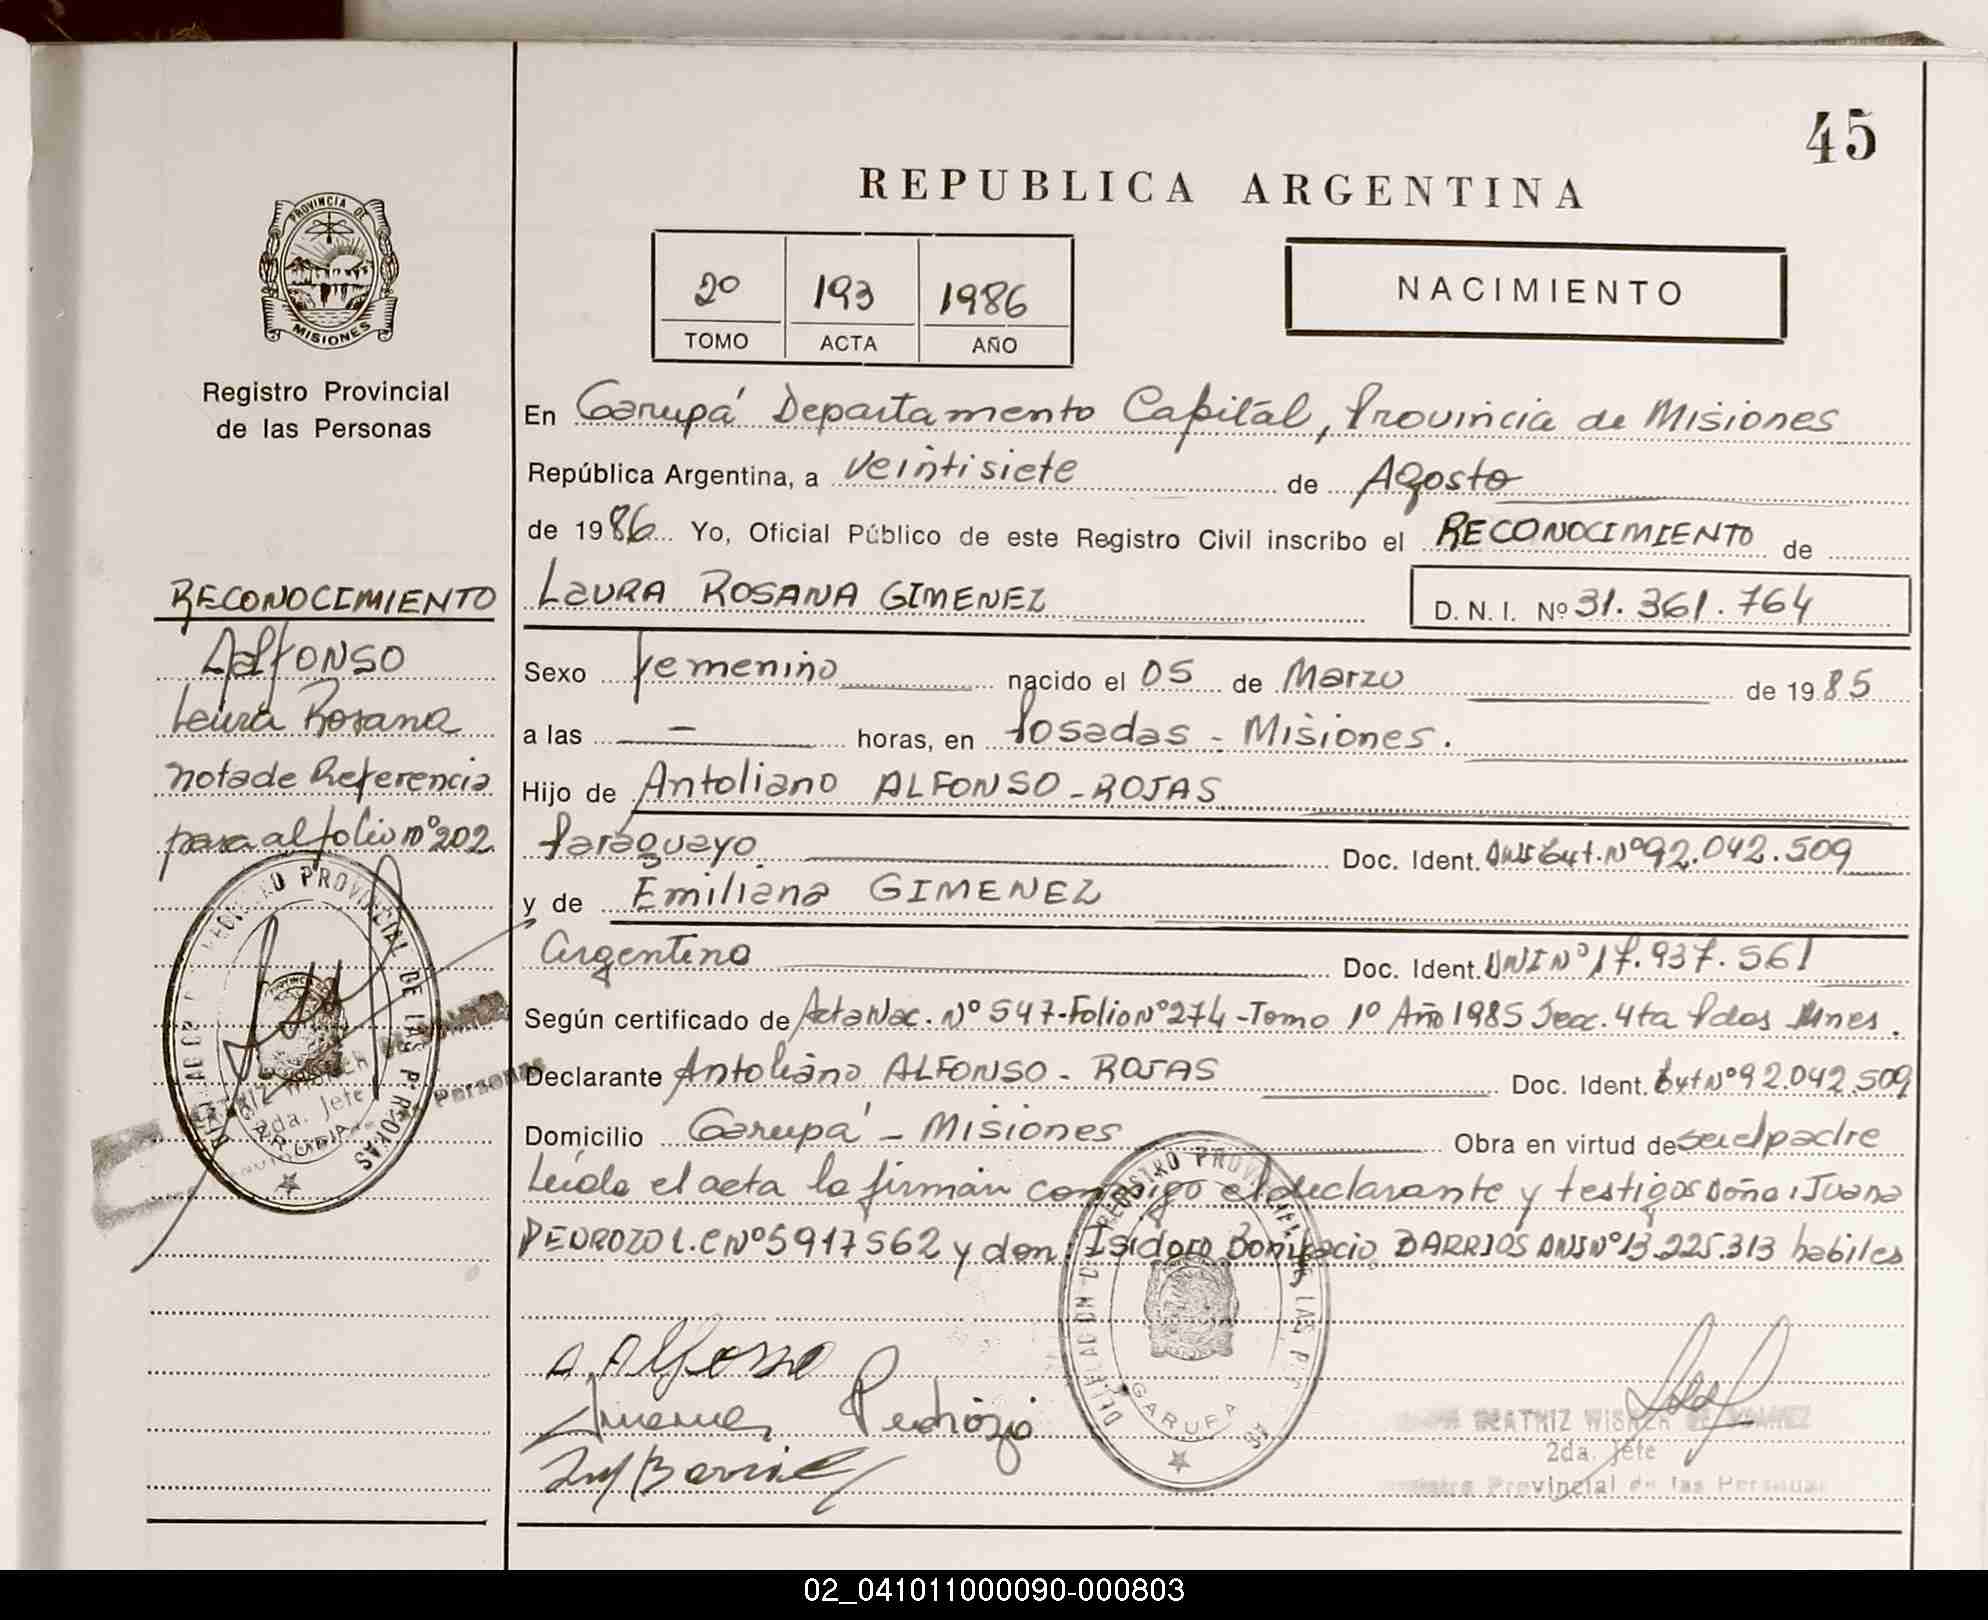 45
REPUBLICA ARGENTINA
PROVINCIA DE
MISIONES
2º 193 1986
TOMO ACTA AÑO
NACIMIENTO
Registro Provincial
de las Personas
En Garupá Departamento Capital, Provincia de Misiones
República Argentina, a veintisiete de Agosto
de 1986 Yo, Oficial Público de este Registro Civil inscribo el RECONOCIMIENTO de
LAURA ROSANA GIMENEZ D. N. I. Nº 31.361.764
Sexo femenino nacido el 05 de Marzo de 1985
a las — horas, en Posadas - Misiones.
Hijo de Antoliano ALFONSO - ROJAS
Paraguayo. Doc. Ident. DNI Ext. Nº 92.042.509
y de Emiliana GIMENEZ
Argentina Doc. Ident. DNI Nº 17.937.561
Según certificado de Acta Nac. Nº 547-Folio Nº 274-Tomo 1º Año 1985 Secc. 4ta Pdas Mnes.
Declarante Antoliano ALFONSO - ROJAS Doc. Ident. Ext Nº 92.042.509
Domicilio Garupá - Misiones Obra en virtud de ser el padre
Leída el acta la firman conmigo el declarante y testigos Doña: Juana
PEDROZO L.C Nº 5917562 y don: Isidoro Bonifacio BARRIOS DNI Nº 13.225.313 habiles
A Alfonso
Juana Pedrozo
Barrios
RECONOCIMIENTO
ALFONSO
Laura Rosana
nota de Referencia
para al folio nº 202
REGISTRO PROVINCIAL DE LAS PERSONAS
2da. Jefe
DELEGACION DE REGISTRO PROVINCIAL DE LAS
GARUPA
BEATRIZ WISNER DE
2da. Jefe
Registro Provincial de las Personas
02_041011000090-000803